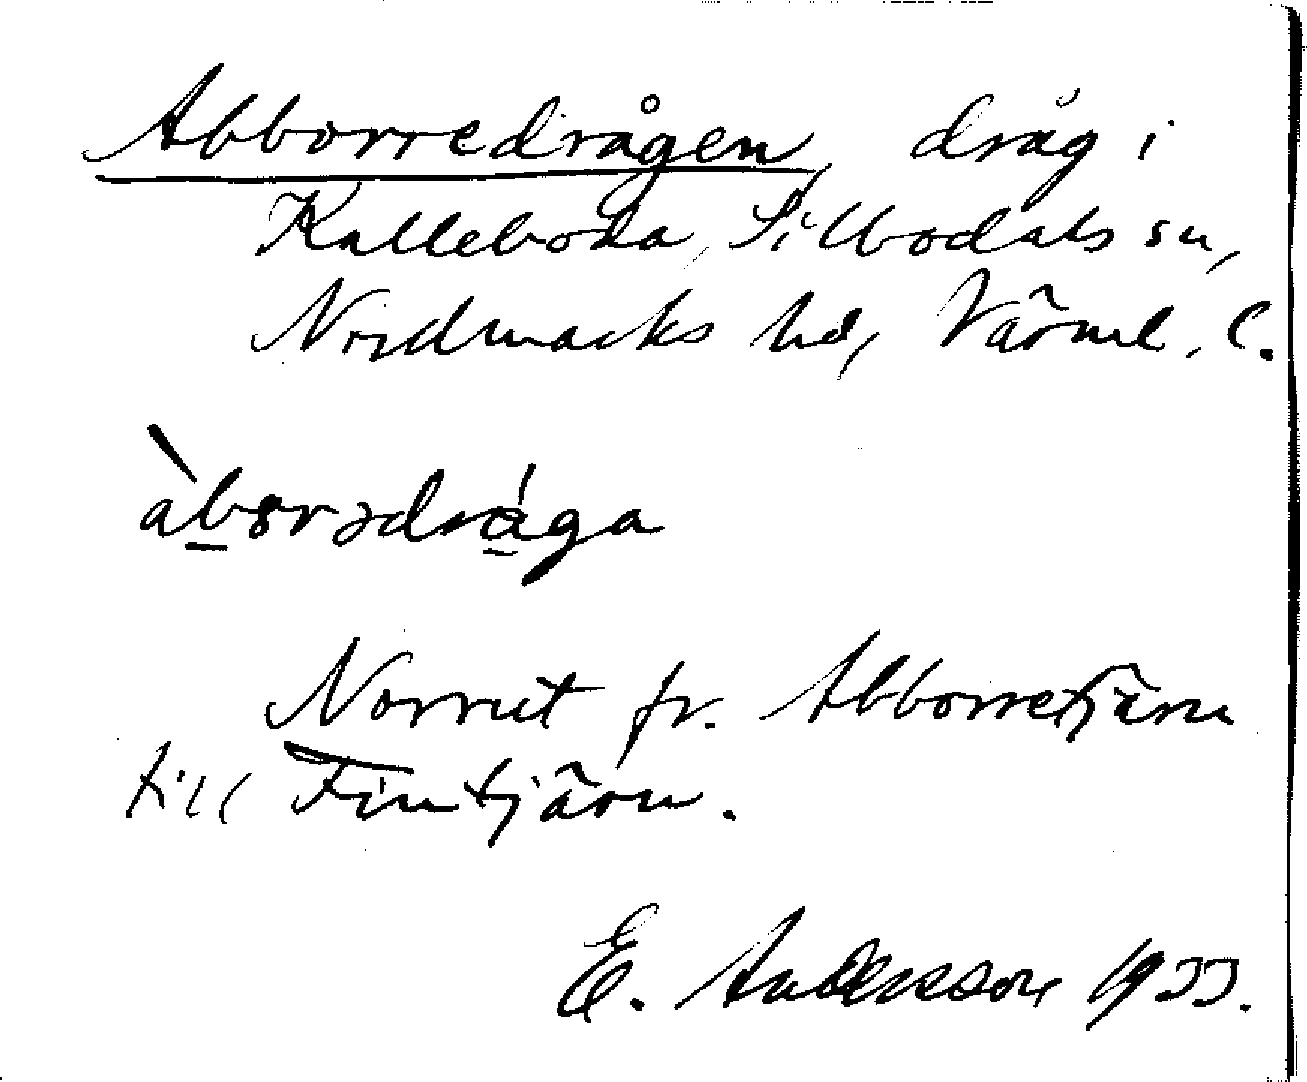 Abborredrågen, dråg i
Kalleboda, Silbodals sn,
Nordmarks hd, Värml. l.
àbɷrədrága
Norrut fr. Abborretjärn
till Fintjärn.
E. Andersson 1933.